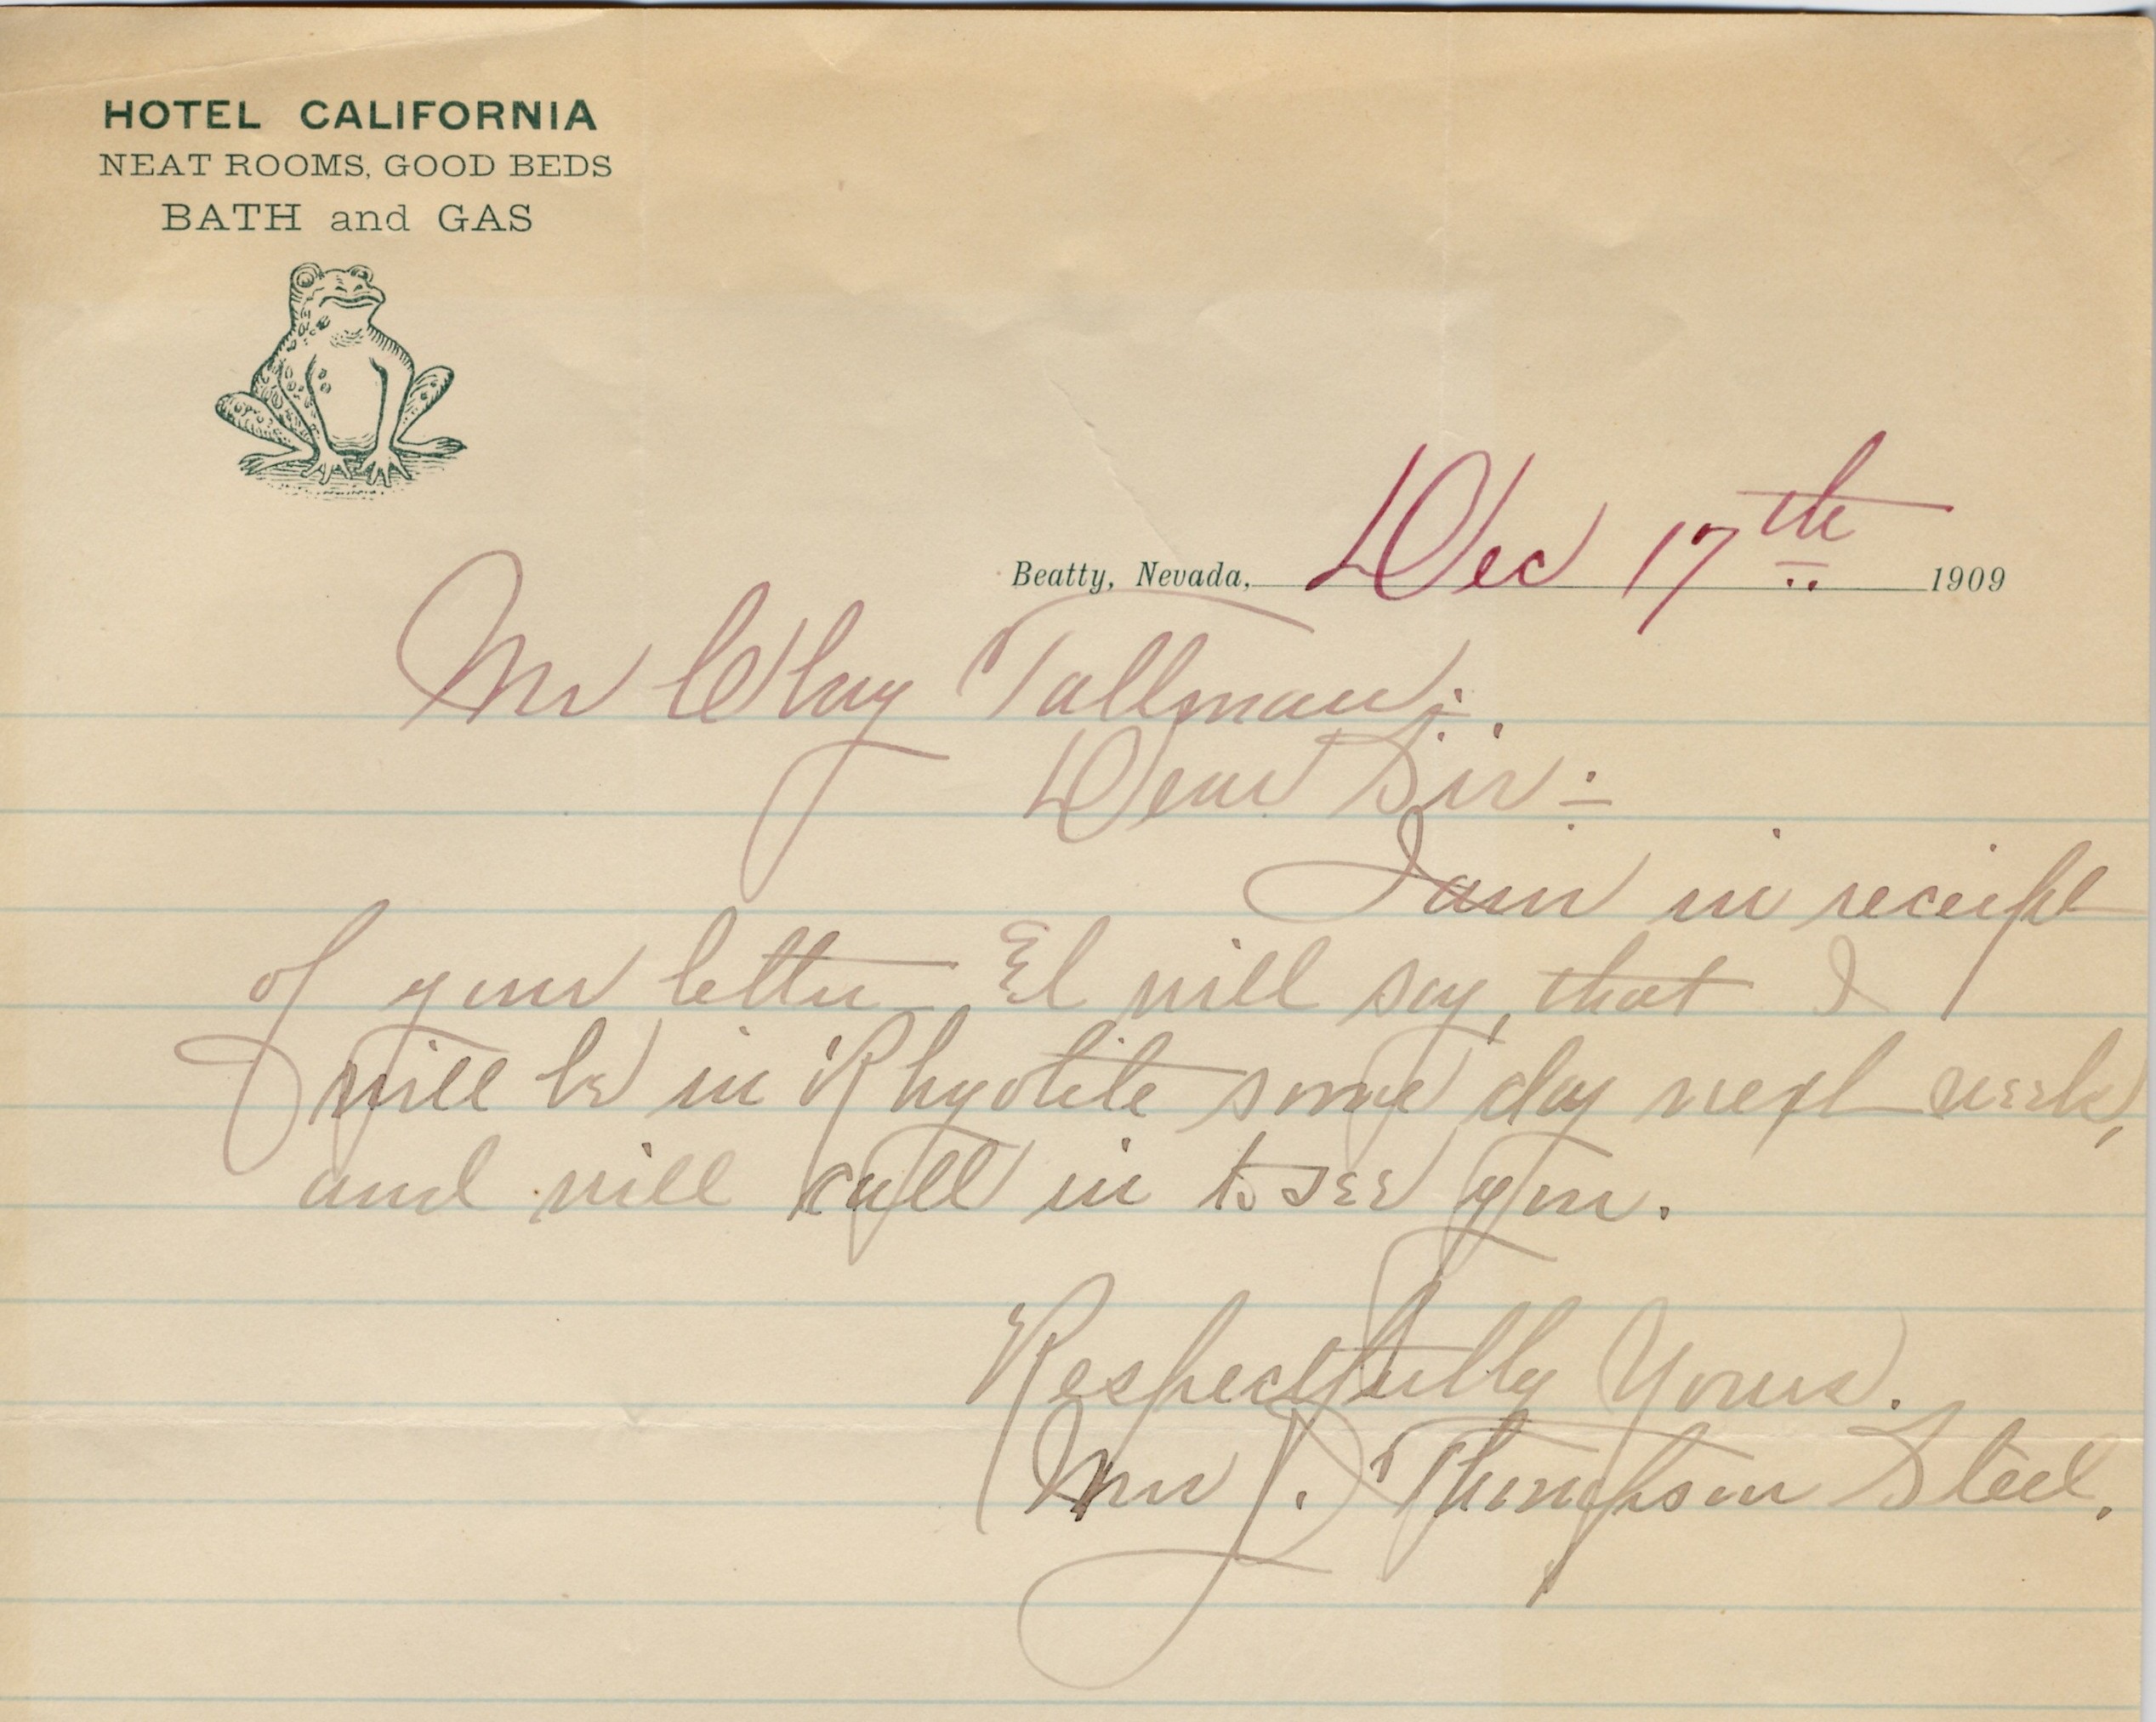 HOTEL CALIFORNIA
NEAT ROOMS, GOOD BEDS
BATH and GAS
Beatty, Nevada, Dec 17th 1909
Mr Clay Tallman:.
Dear Sir:
I am in receipt
of your letter & will say, that I
will be in Rhyolite some day next week,
and will call in to see you.
Respectfully Yours.
Mrs J. Thompson Steel.